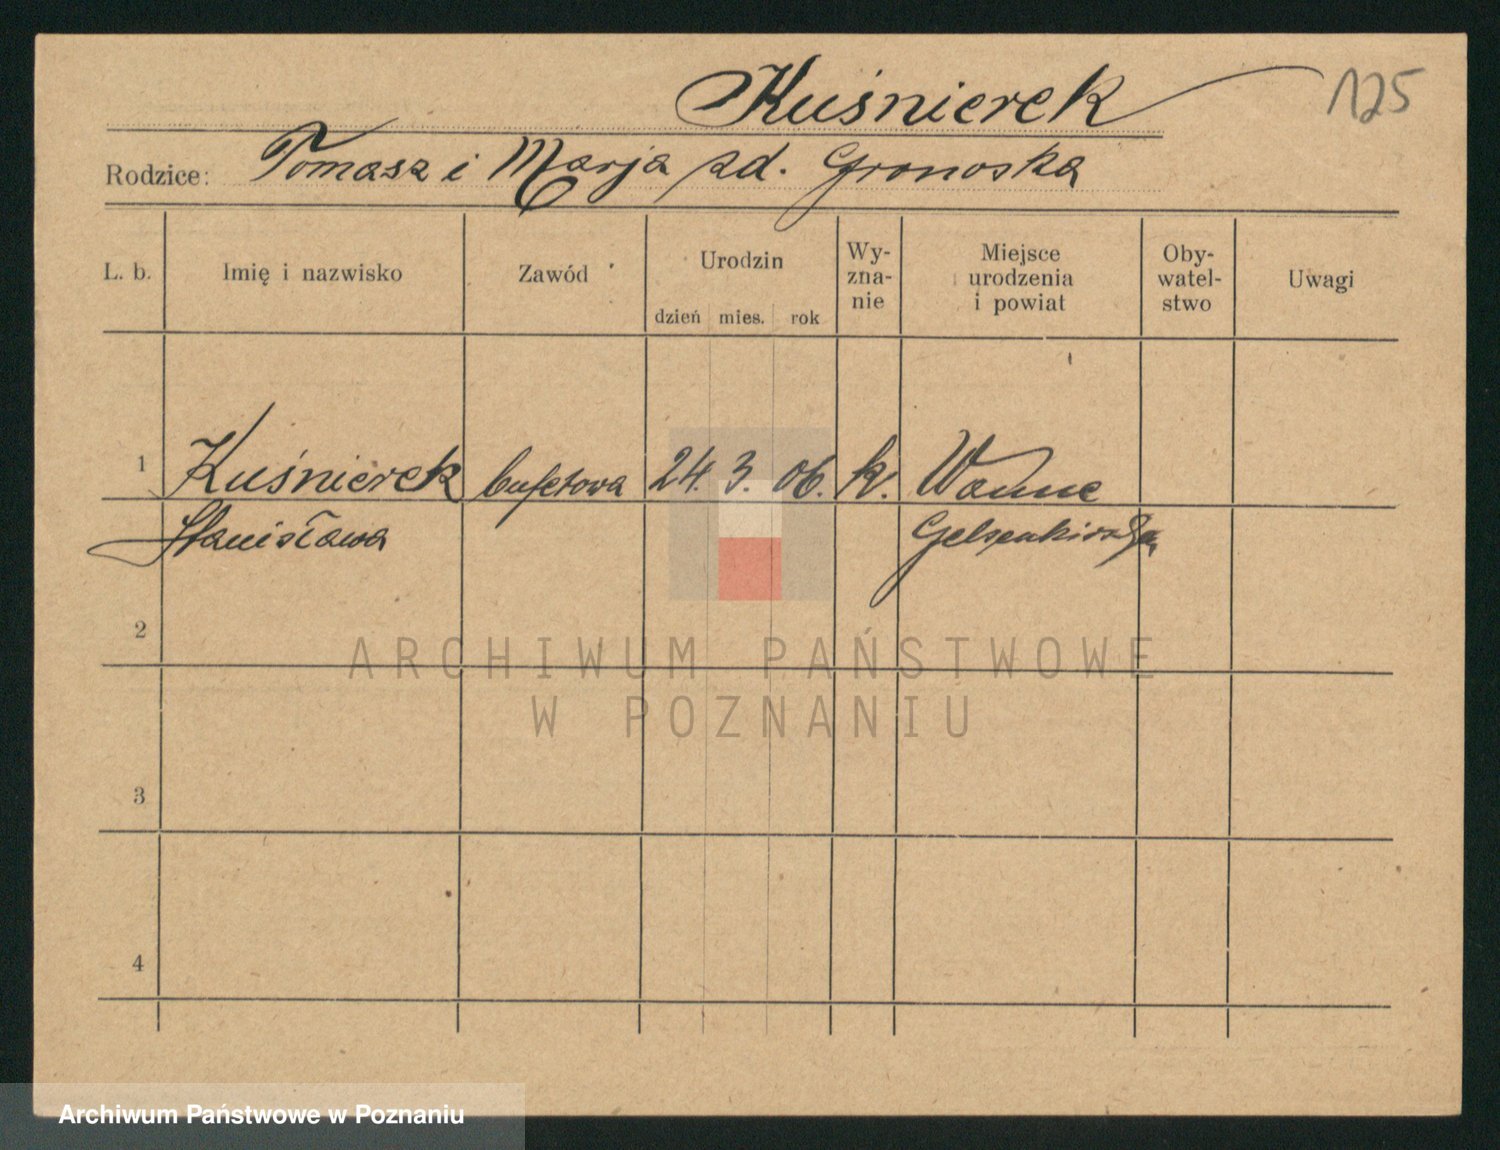 Kuśnierek 125
Rodzice: Tomasz i Marja zd. Gronoska
L. b. Imię i nazwisko Zawód Urodzin dzień mies. rok Wy-zna-nie Miejsce urodzenia i powiat Oby-watel-stwo Uwagi
1 Kuśnierek bufetowa 24. 3. 06. k. Wanne
Stanisława Gelsenkirchen
2
ARCHIWUM PAŃSTWOWE
W POZNANIU
3
4
Archiwum Państwowe w Poznaniu